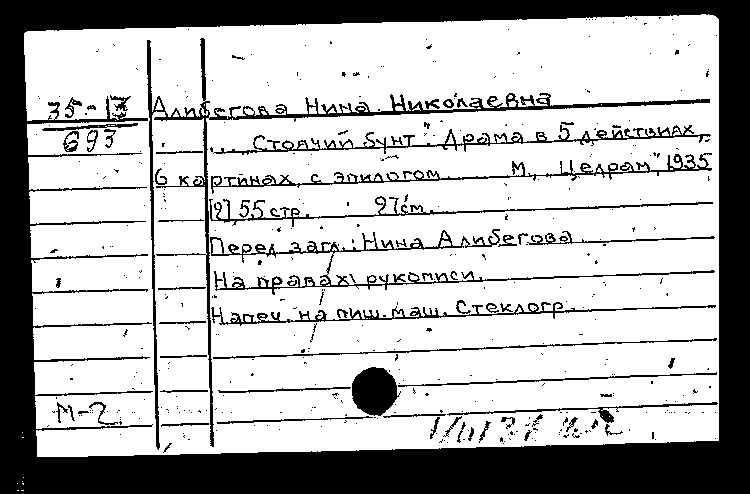 35-13
693
Алибегова, Нина Николаевна
... "Стоячий бунт". Драма в 5 действиях,
6 картинах, с эпилогом М., "Цедрам", 1935
[2] 55 стр. 27 см.
Перед загл.: Нина Алибегова
На правах рукописи.
Напеч. на пиш. маш. Стеклогр.
М-2